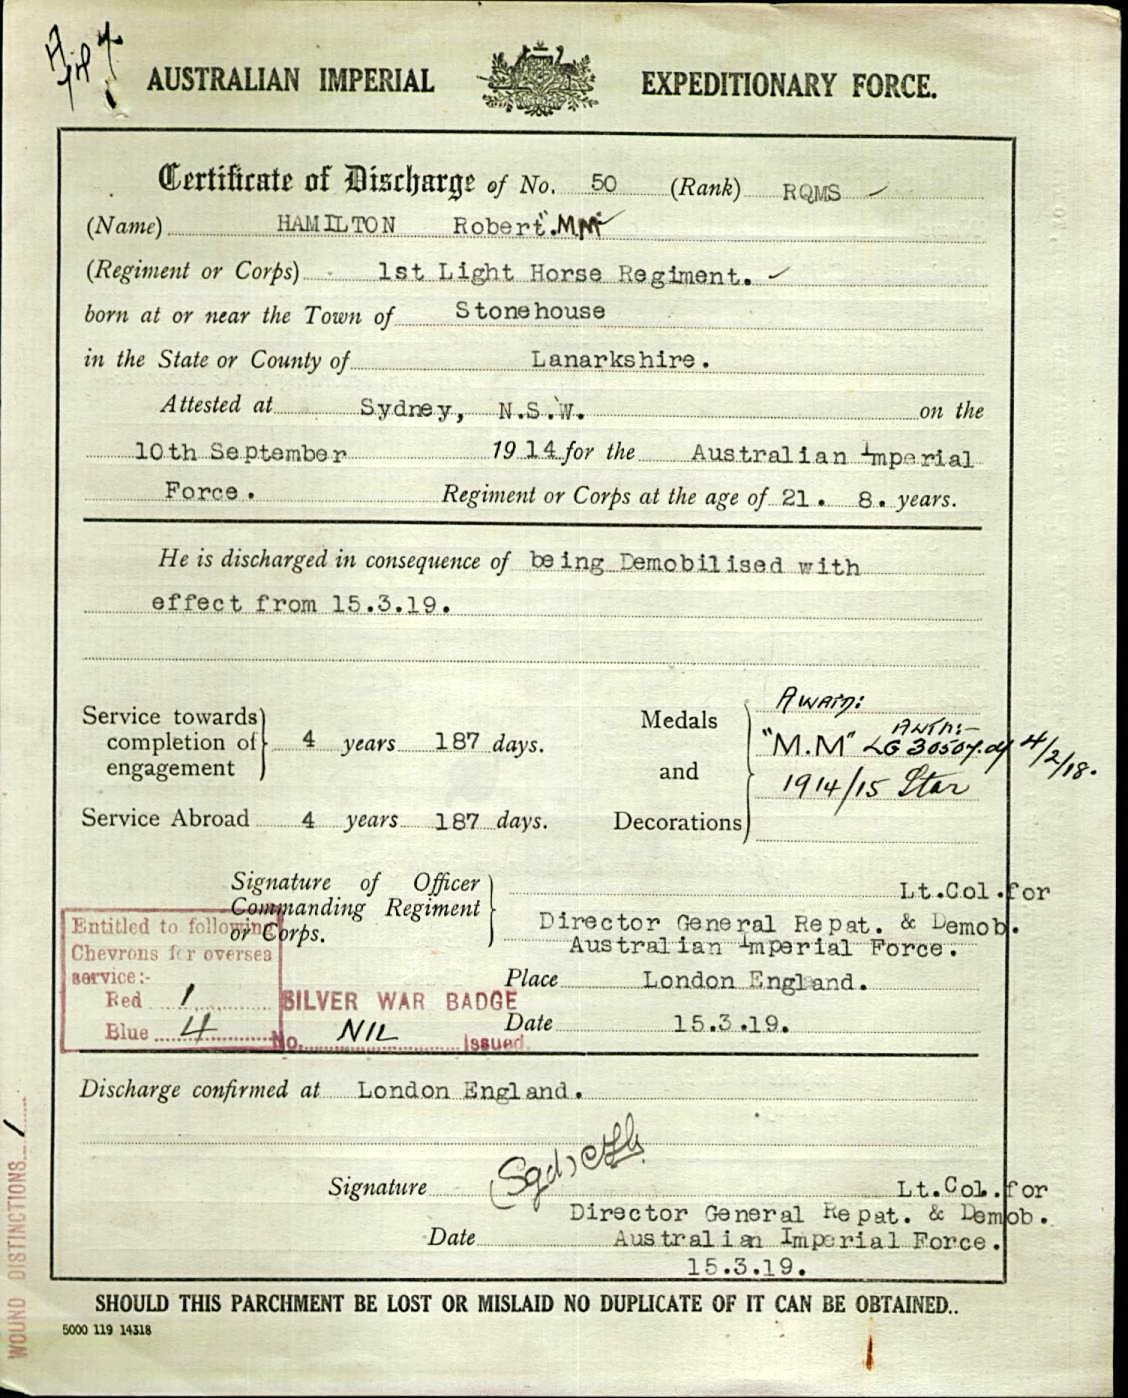 AUSTRALIAN IMPERIAL EXPEDITIONARY FORCE.
Certificate of Discharge of No. 50 (Rank) RQMS
(Name) HAMILTON Robert. "M.M"
(Regiment or Corps) 1st Light Horse Regiment.
born at or near the Town of Stonehouse
in the State or County of Lanarkshire.
Attested at Sydney, N.S.W. on the
10th September 1914 for the Australian Imperial
Force. Regiment or Corps at the age of 21. 8. years.
He is discharged in consequence of being Demobilised with
effect from 15.3.19.
Service towards completion of engagement 4 years 187 days.
Service Abroad 4 years 187 days.
Medals and Decorations
Award:
Auth:-
"M.M" LG 30507 d/ 4/2/18.
1914/15 Star
Signature of Officer Commanding Regiment or Corps.
Lt.Col.for
Director General Repat. & Demob.
Australian Imperial Force.
Place London England.
Date 15.3.19.
Entitled to following
Chevrons for oversea
service:-
Red 1
Blue 4
SILVER WAR BADGE
No. NIL Issued.
Discharge confirmed at London England.
(Sgd)
Signature Lt.Col.for
Director General Repat. & Demob.
Date Australian Imperial Force.
15.3.19.
WOUND DISTINCTIONS 1
SHOULD THIS PARCHMENT BE LOST OR MISLAID NO DUPLICATE OF IT CAN BE OBTAINED..
5000 119 14318